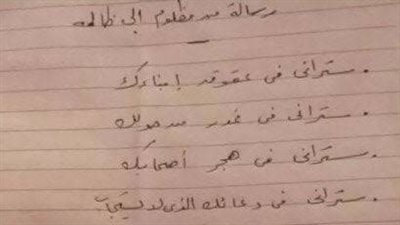 رسالة من مظلوم إلى ظالمه
. سترانى فى عقوق أبناءك
. سترانى فى غدر من حولك
. سترانى فى هجر أصحابك
. سترانى فى دعائك الذى لا يستجاب